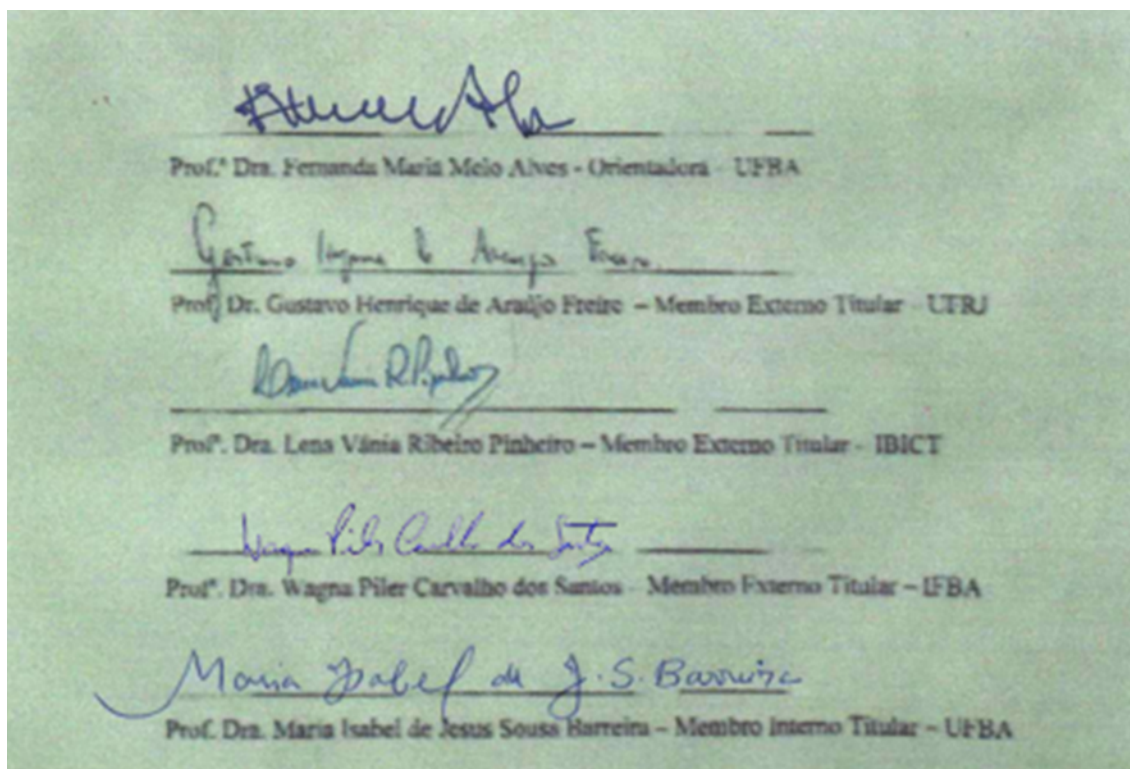 Prof.ª Dra. Fernanda Maria Melo Alves - Orientadora - UFBA
Gustavo Henrique de Araujo Freire
Prof. Dr. Gustavo Henrique de Araújo Freire – Membro Externo Titular - UFRJ
Lena Vania R. Pinheiro
Profª. Dra. Lena Vânia Ribeiro Pinheiro – Membro Externo Titular - IBICT
Wagna Piler Carvalho dos Santos
Profª. Dra. Wagna Piler Carvalho dos Santos - Membro Externo Titular – IFBA
Maria Isabel de J. S. Barreira
Prof. Dra. Maria Isabel de Jesus Sousa Barreira – Membro Interno Titular – UFBA